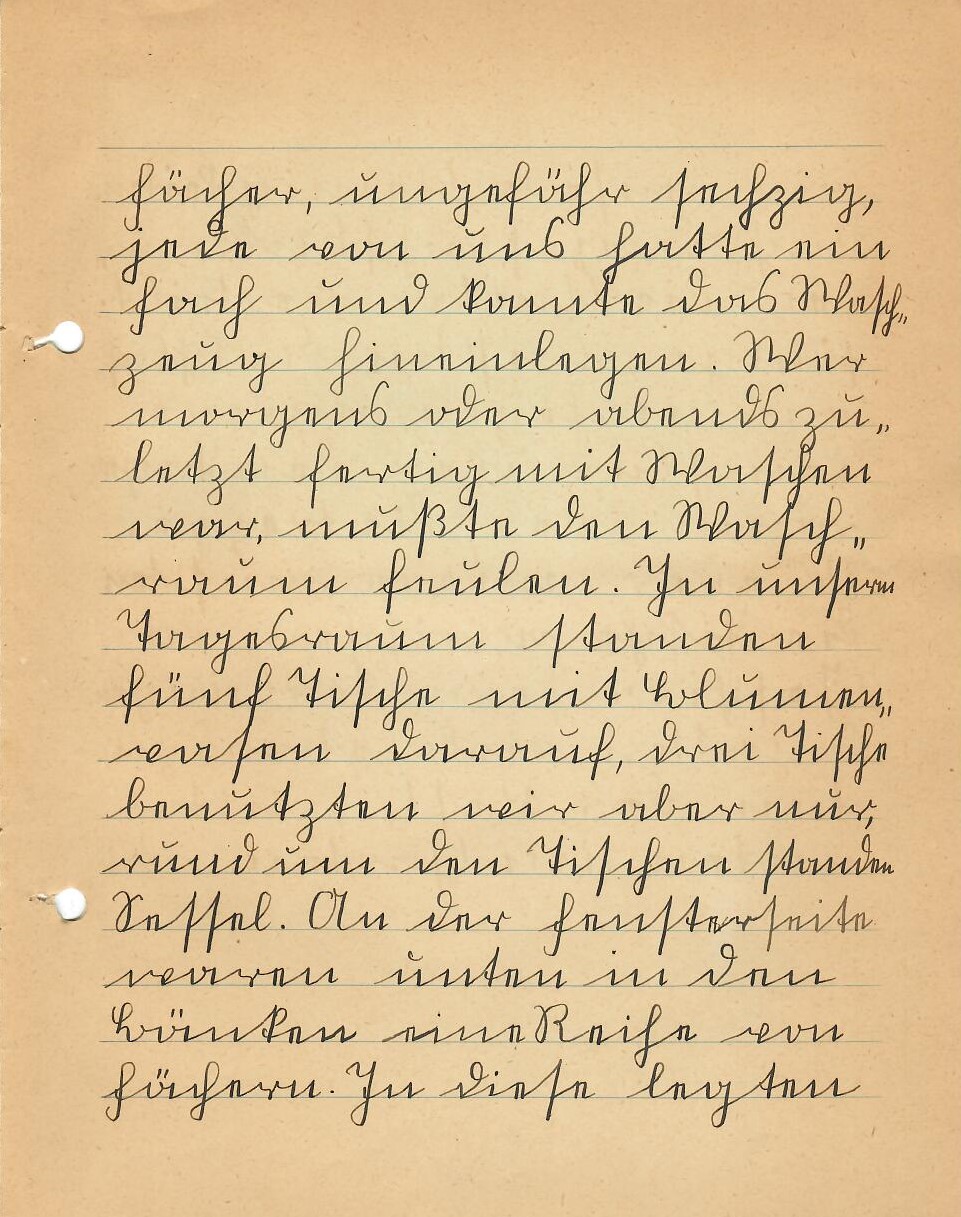 fächer, ungefähr sechzig,
jede von uns hatte ein
Fach und konnte das Wasch„
zeug hineinlegen. Wer
morgens oder abends zu„
letzt fertig mit Waschen
war, mußte den Wasch„
raum feulen. In unserm
Tagesraum standen
fünf Tische mit Blumen„
vasen darauf, drei Tische
benutzten wir aber nur,
rund um den Tischen standen
Sessel. An der Fensterseite
waren unten in den
Bänken eine Reihe von
Fächern. In diese legten